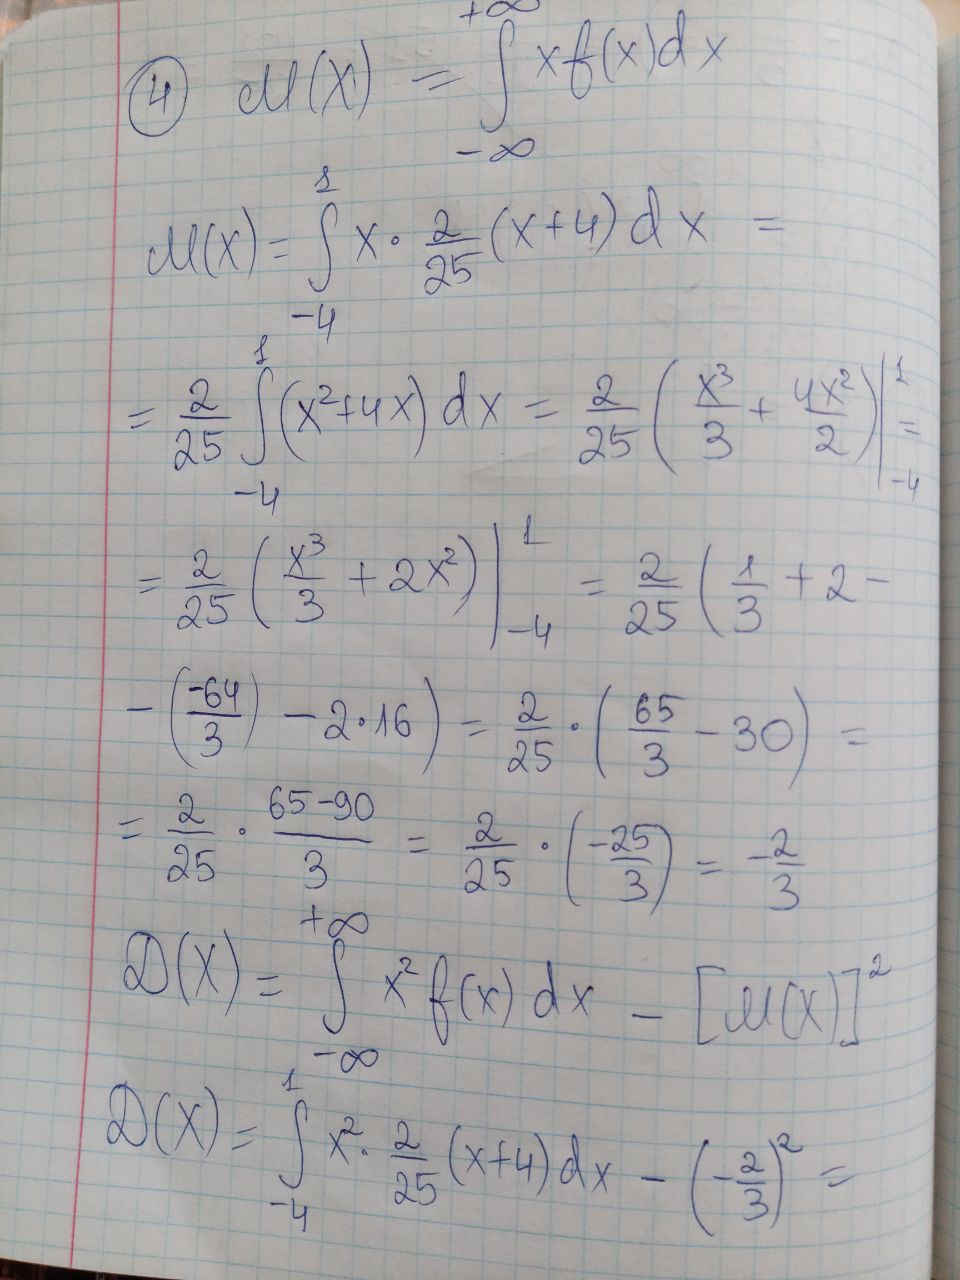 ④ M(X) = ∫_{-∞}^{+∞} x f(x) dx
M(X) = ∫_{-4}^{1} x · 2/25 (x+4) dx =
= 2/25 ∫_{-4}^{1} (x²+4x) dx = 2/25 (x³/3 + 4x²/2) |_{-4}^{1} =
= 2/25 (x³/3 + 2x²) |_{-4}^{1} = 2/25 (1/3 + 2 -
- (-64/3) - 2·16) = 2/25 · (65/3 - 30) =
= 2/25 · (65-90)/3 = 2/25 · (-25/3) = -2/3
D(X) = ∫_{-∞}^{+∞} x² f(x) dx - [M(X)]²
D(X) = ∫_{-4}^{1} x² · 2/25 (x+4) dx - (-2/3)² =